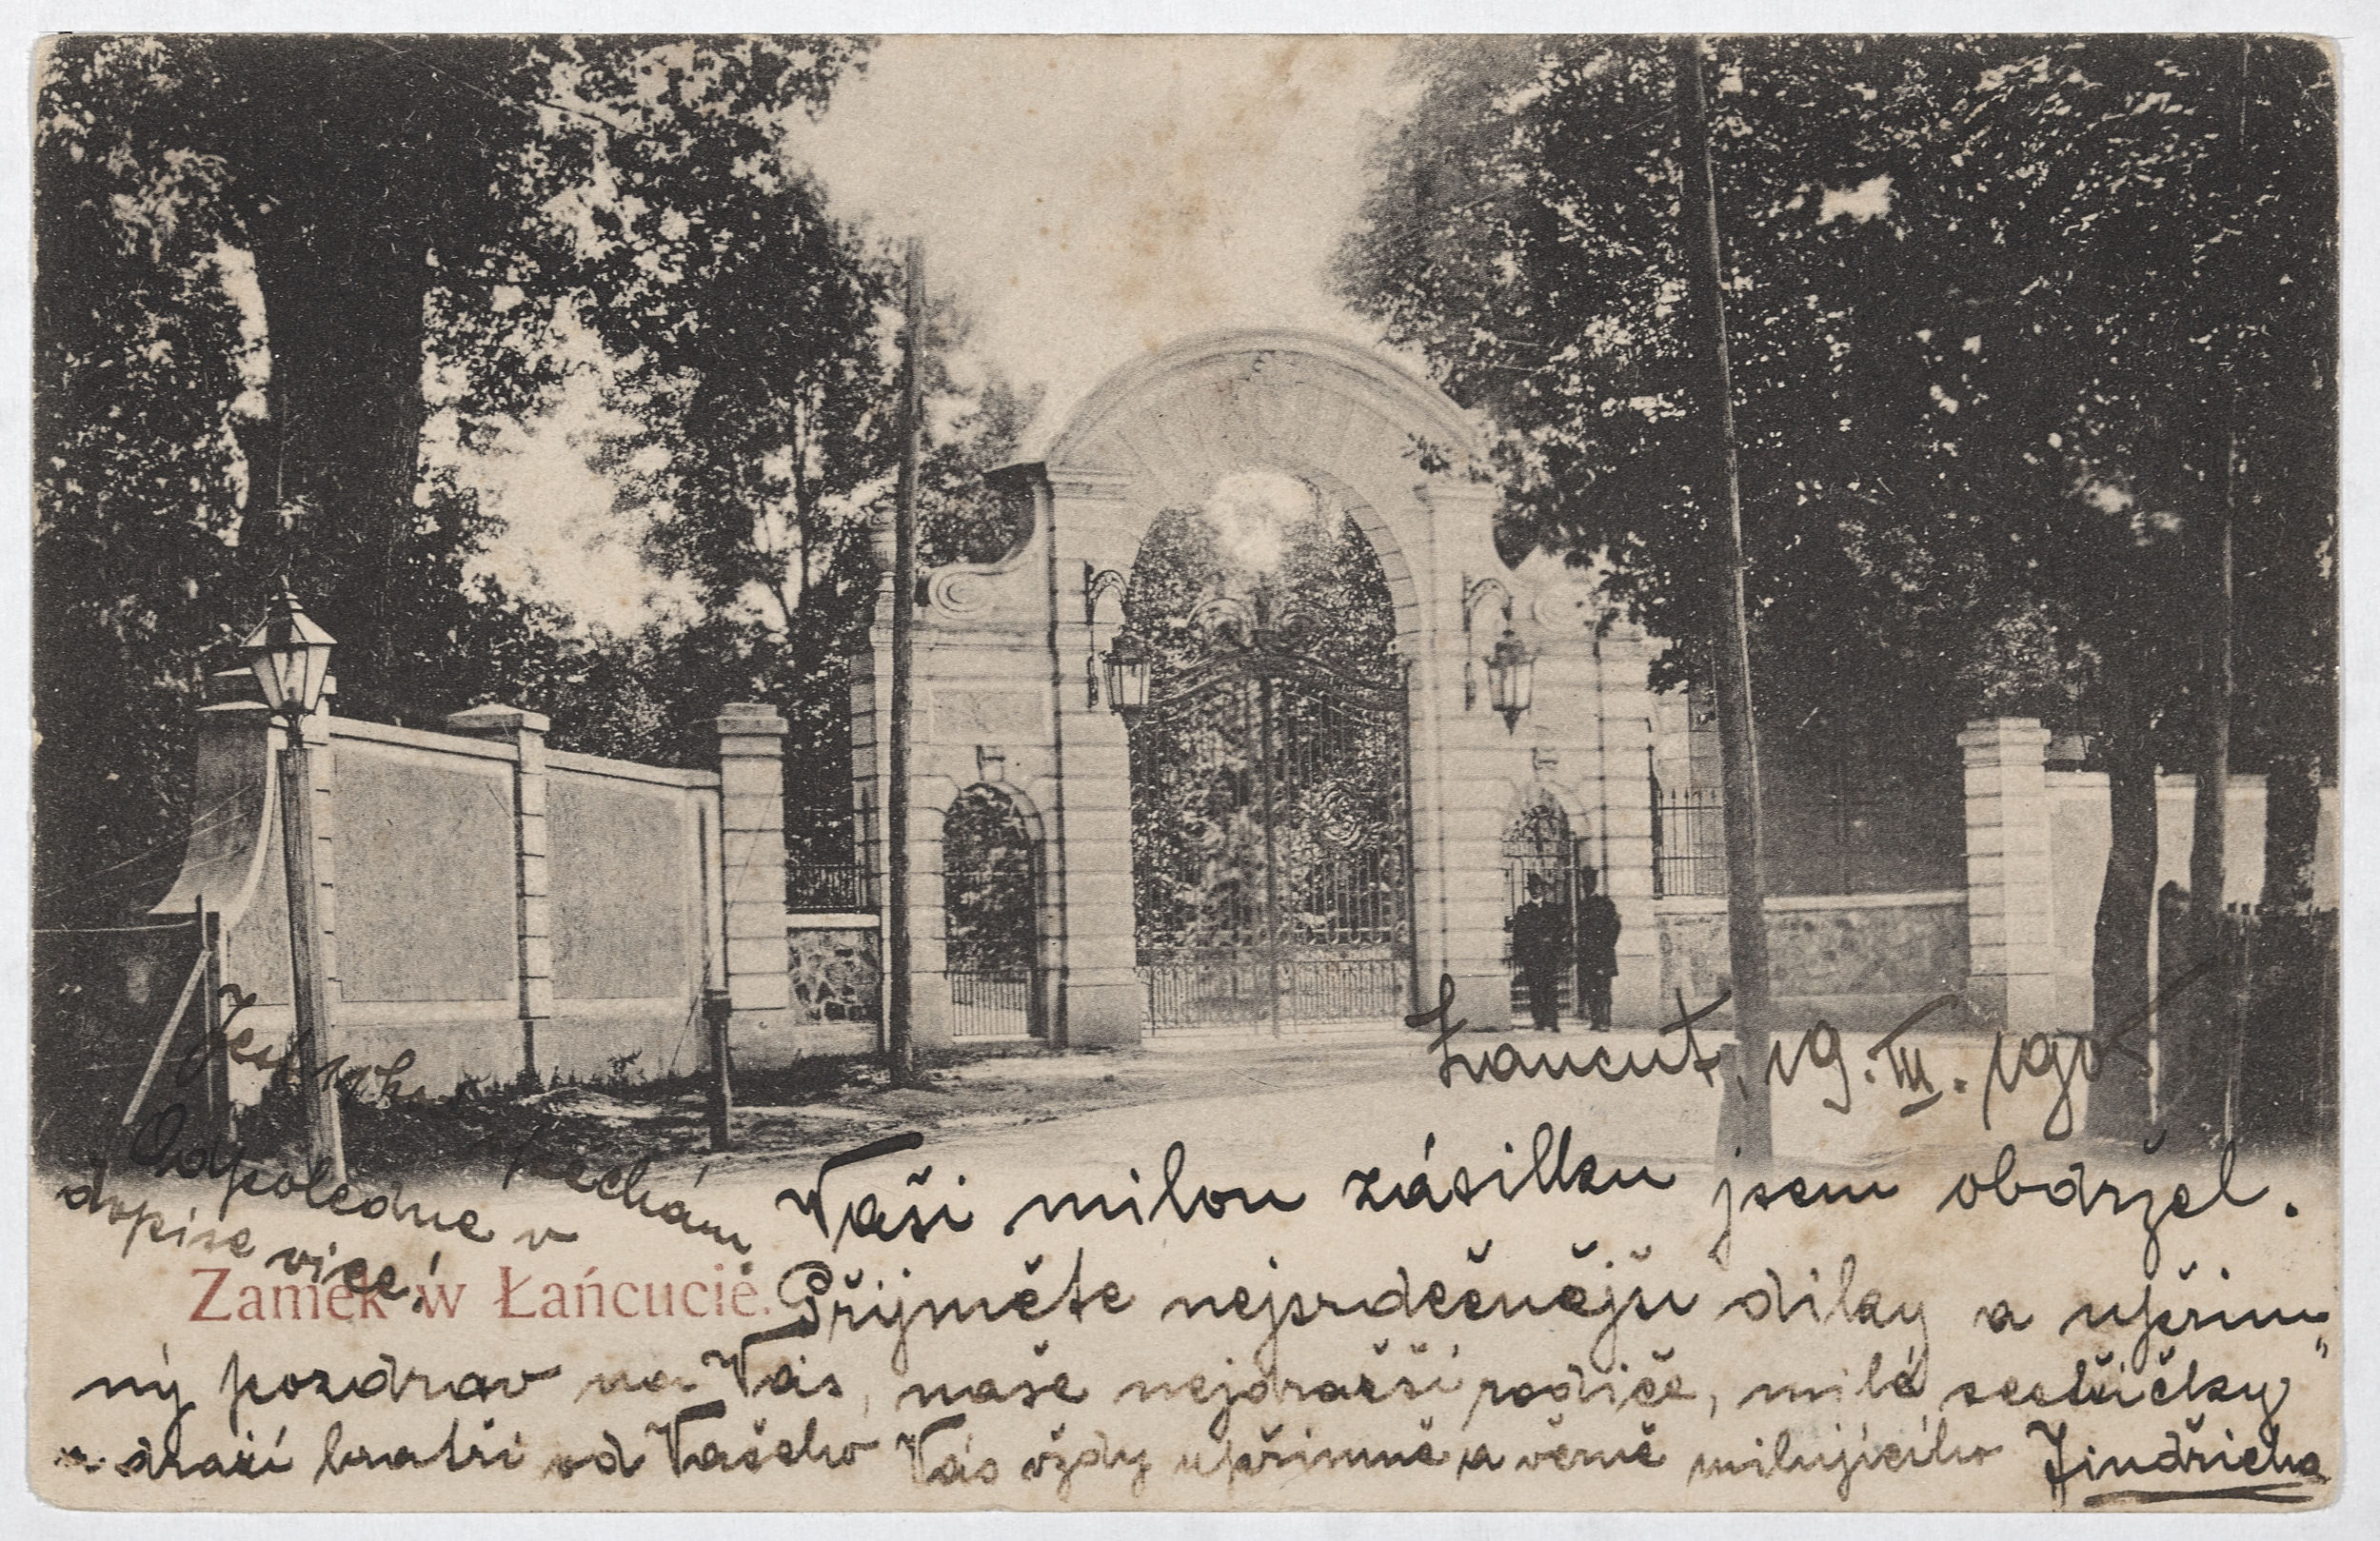 Łancut, 19. III. 1905
Vaši milou zásilku jsem obdržel.
Přijměte nejsrdečnějsi diky a upřim„
ný pozdrav na Vás, naše nejdražší rodiče, milé sestřičky"
a drazí bratři od Vašeho Vás vždy upřimně a věrně milujícího Jindřicha
Odpoledne v
dopise vice!
Zamek w Łańcucie.